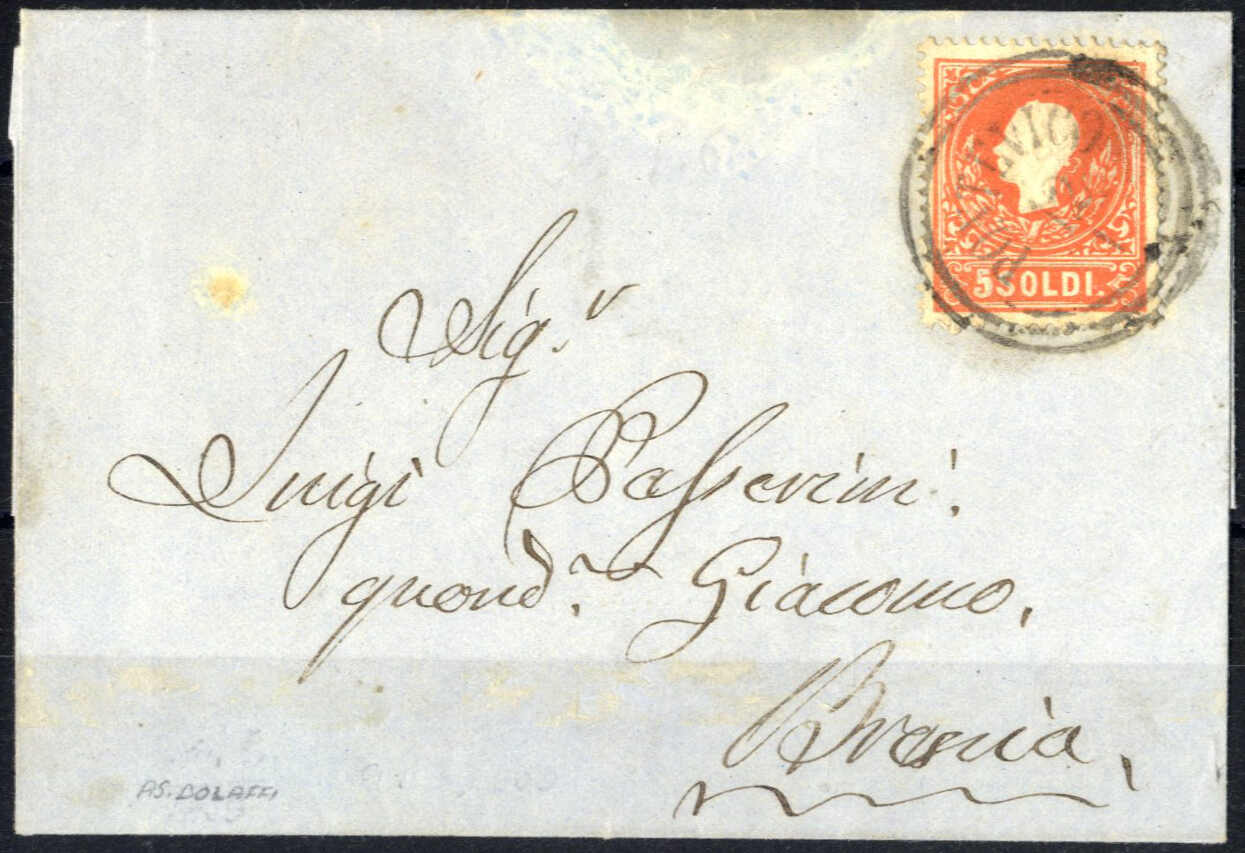 5 SOLDI.
Sig.r
Luigi Passerini.
quond.m Giacomo,
Brescia,
AS. BOLAFFI